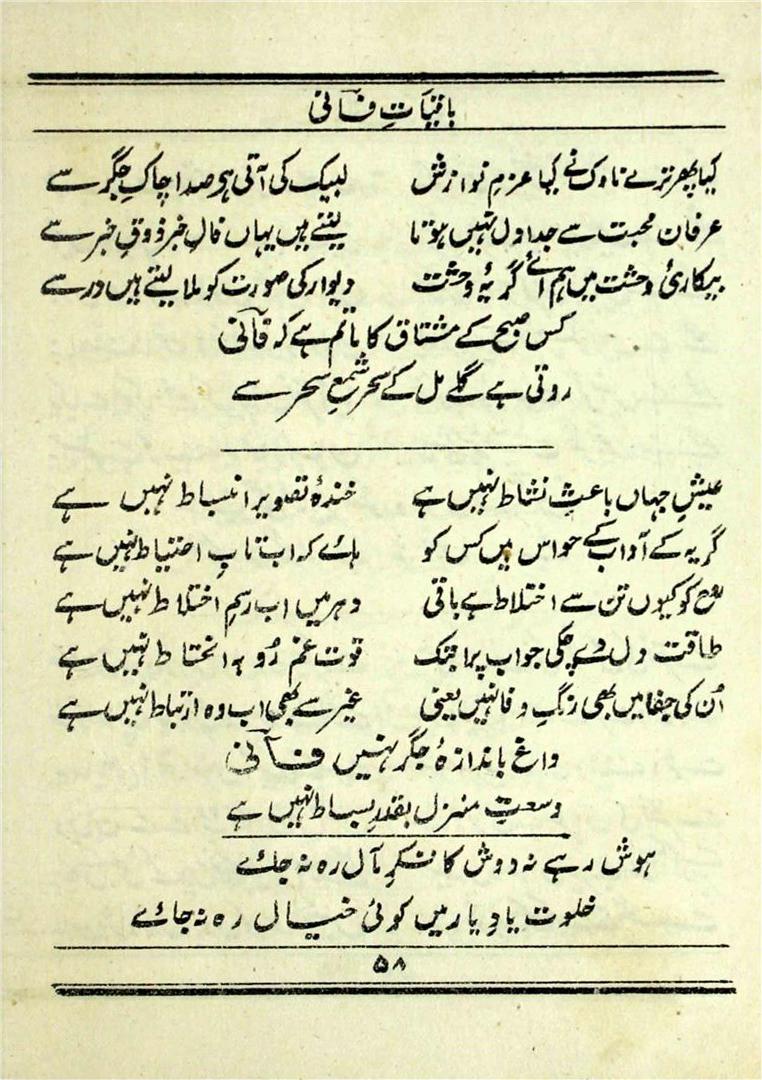 باقیاتِ فانی
کیا پھر ترے ناوک نے کیا عزمِ نوازش لبیک کی آتی ہو صدا چاکِ جگر سے
عرفان محبت سے جدا دل نہیں ہوتا لیتے ہیں یہاں فالِ خبر ذوقِ خبر سے
بیکاریٔ وحشت میں ہم اے گریۂ وحشت دیوار کی صورت کو ملا لیتے ہیں در سے
کس صبح کے مشتاق کا ماتم ہے کہ فآنی
روتی ہے گلے مل کے سحر شمعِ سحر سے
عیشِ جہاں باعثِ نشاط نہیں ہے خندۂ تصویر انبساط نہیں ہے
گریہ کے آداب کے حواس ہیں کس کو ہائے کہ اب تابِ احتیاط نہیں ہے
روح کو کیوں تن سے اختلاط ہے باقی دہر میں اب رسمِ اختلاط نہیں ہے
طاقت دل دے چکی جواب پر ابتک قوت غم رُو بہ انحتاط نہیں ہے
اُن کی جفا میں بھی رنگِ وفا نہیں یعنی غیر سے بھی اب وہ ارتباط نہیں ہے
داغ باندازۂ جگر نہیں فآنی
وسعتِ منزل بقدرِ بساط نہیں ہے
ہوش رہے نہ دوش کا فکرِ مآل رہ نہ جائے
خلوت یادِ یار میں کوئی خیال رہ نہ جائے
۵۸